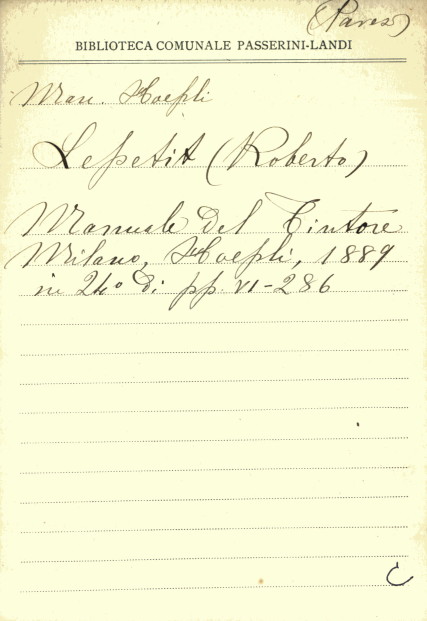 (Pares)
BIBLIOTECA COMUNALE PASSERINI-LANDI
Man. Hoepli
Lepetit (Roberto)
Manuale del Tintore
Milano, Hoepli, 1889
in 24° di pp. VI-286
C